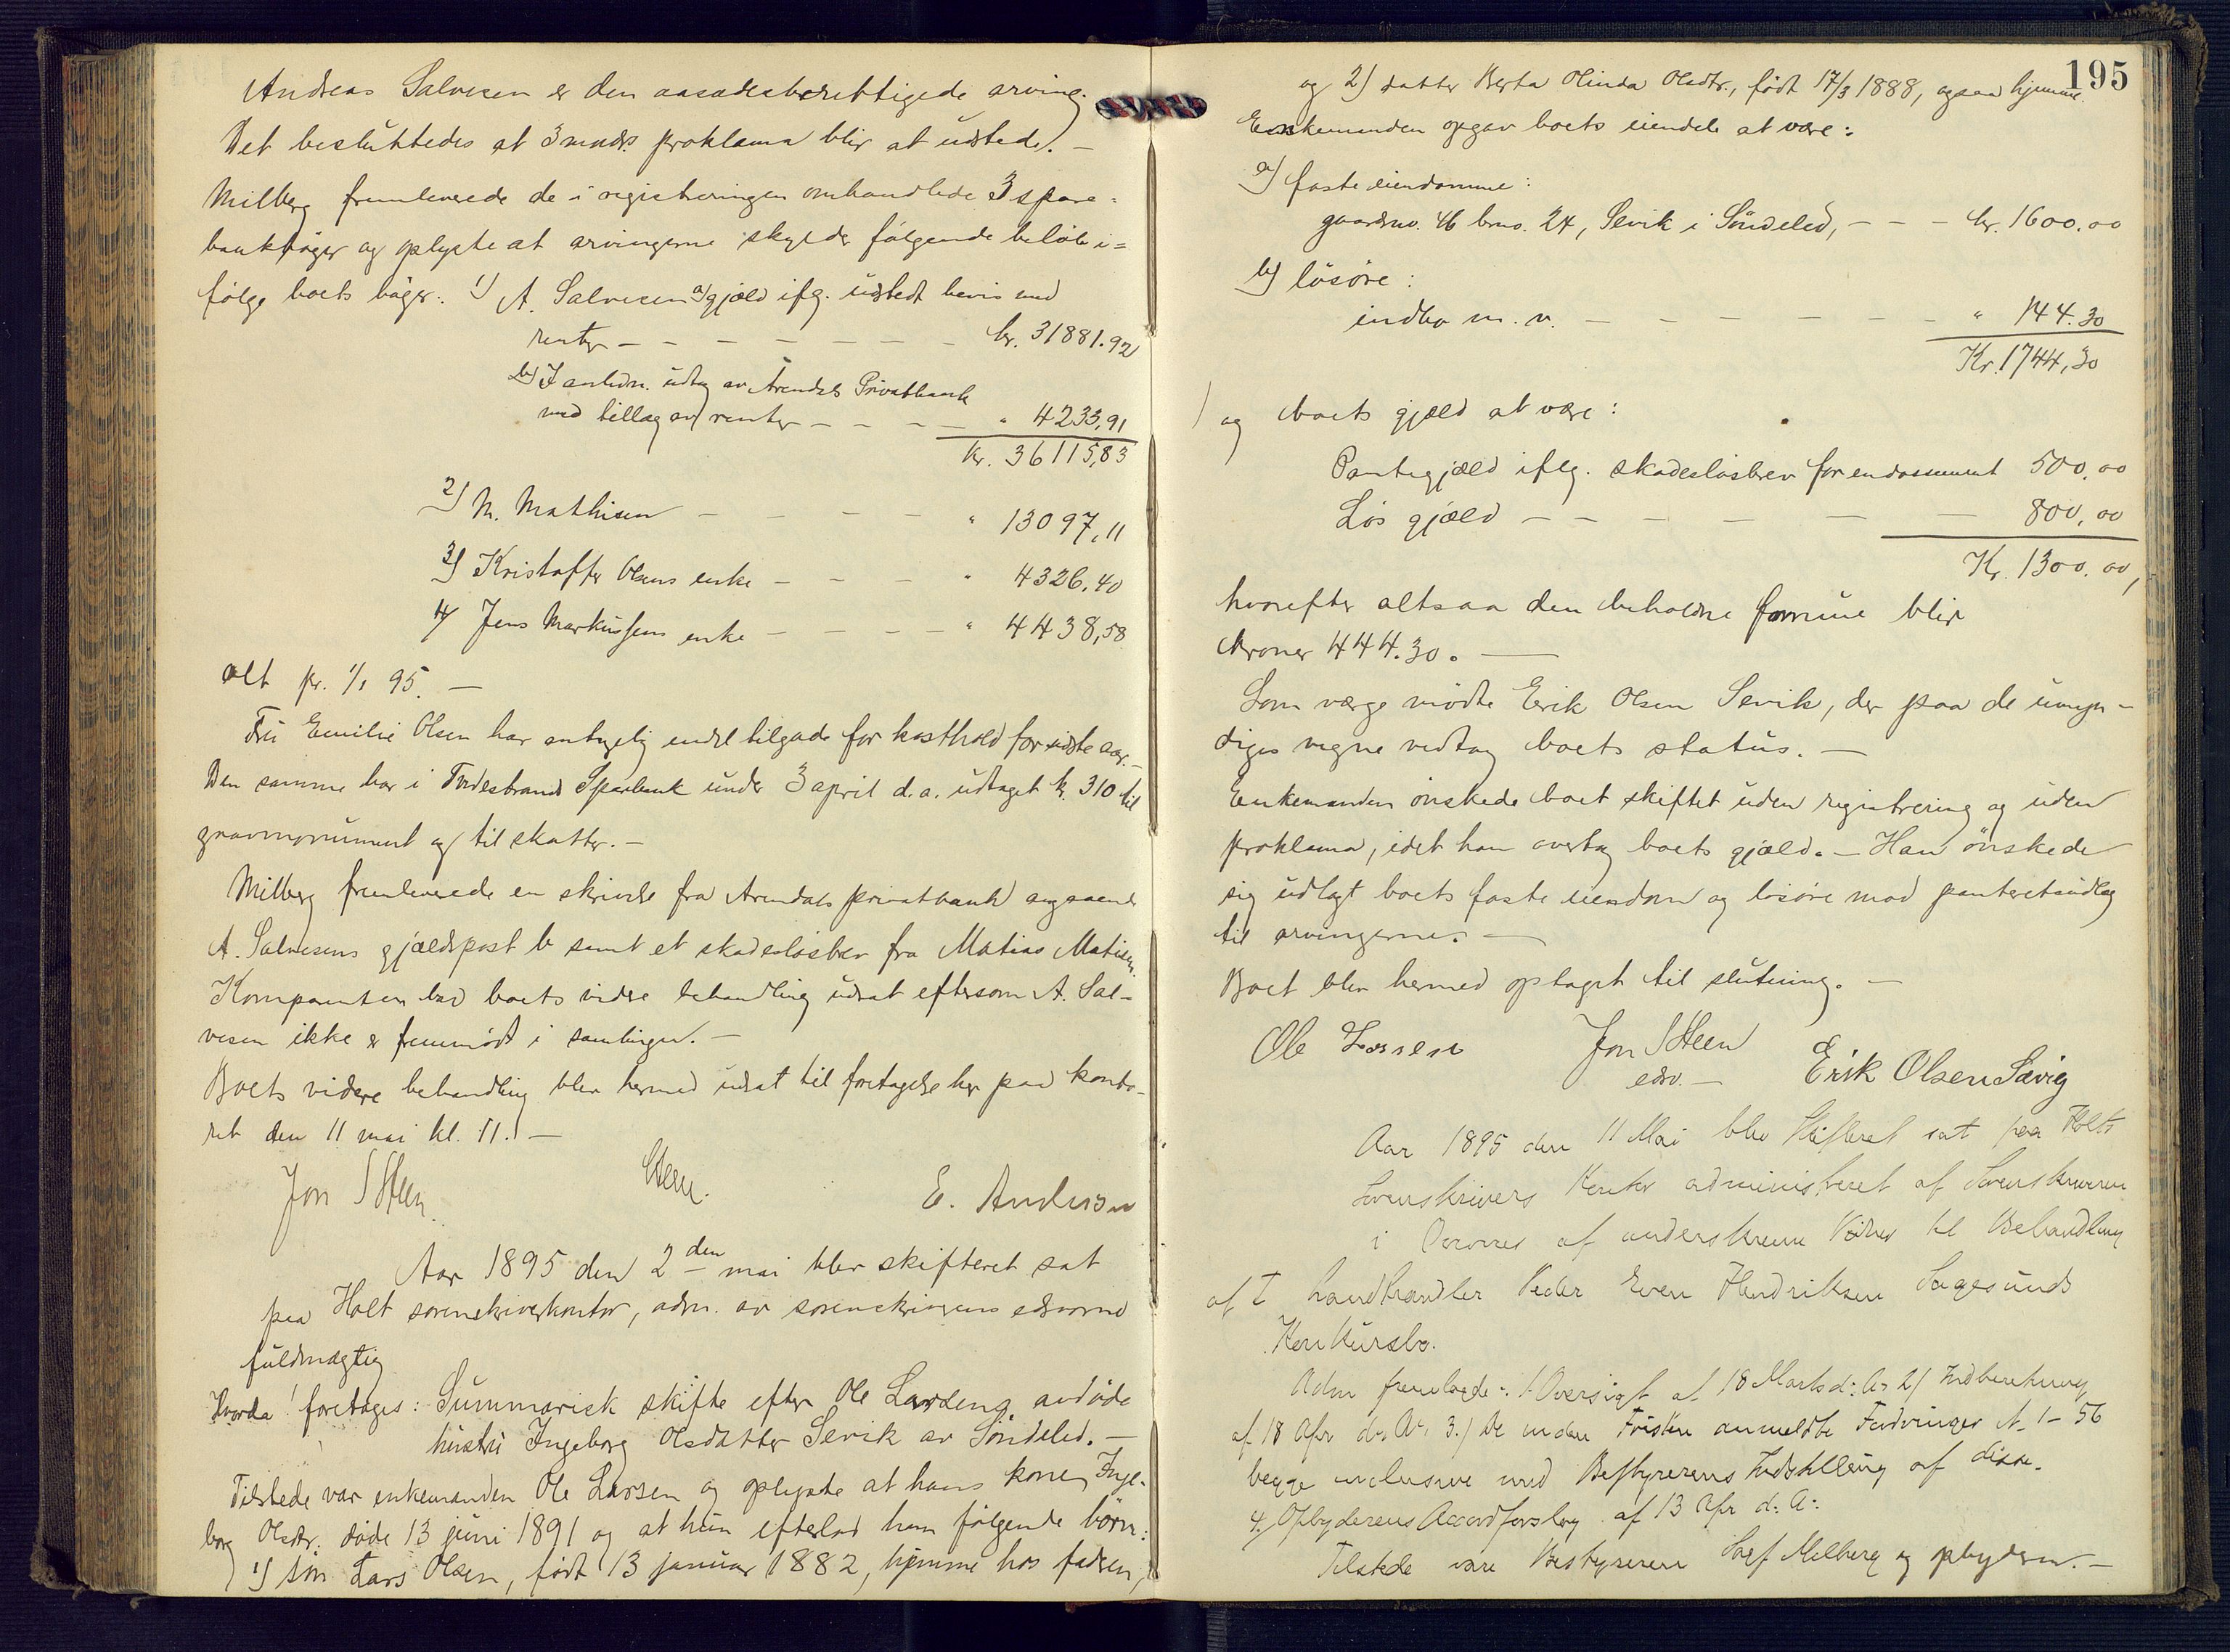 Andreas Salvesen er den aasædesberettigede arving.
Det besluttedes at 3 mndrs proklama blir at udstede. –
Milberg fremleverede de i registreringen omhandlede 3 spare-
bankbøger og oplyste at arvingerne skylder følgende beløb i-
følge boets bøger: 1) A. Salvesen a) gjæld iflg. udstedt bevis med
renter – – – – – – – kr. 31881.92
b) I anledn. udtag av Arendals Privatbank
med tillæg av renter – – – – " 4233,91
kr. 36115,83
2) M. Mathisen – – – – " 13097,11
3) Kristoffer Olsens enke – – – " 4326.40
4) Jens Markussens enke – – – – " 4438,58
alt pr. 1/1 95. –
Fru Emilie Olsen har endel tilgode for kosthold for sidste aar. –
Den samme har i Tvedestrands Sparebank under 3 april d.a. udtaget kr. 310 til
gravmonument og til skatter. –
Milberg fremleverede en skrivelse fra Arendals privatbank angaaende
A. Salvesens gjældspost b samt et skadesløsbrev fra Matias Matisen.
Komparenten bad boets videre behandling udsat eftersom A. Sal-
vesen ikke er fremmødt i samlingen. –
Boets videre behandling blev hermed udsat til foretagelse her paa konto-
ret den 11 mai kl. 11. –
Jon S Steen. Steen. E. Anderson
Aar 1895 den 2den mai blev skifteret sat
paa Holt sorenskriverkontor, adm. av sorenskriverens edsvorne
fuldmægtig
Hvorda! foretages: Summarisk skifte efter Ole Larsens avdøde
hustru Ingeborg Olsdatter Sevik av Søndeled. –
Tilstede var enkemanden Ole Larsen og oplyste at hans kone Inge-
borg Olsdtr. døde 13 juni 1891 og at hun efterlod ham følgende børn:
1) søn Lars Olsen, født 13 januar 1882, hjemme hos faderen,
195
og 2) datter Berta Olinda Olsdtr., født 17/3 1888, ogsaa hjemme.
Enkemanden opgav boets eiendele at være:
a) faste eiendomme:
gaardsno. 46 brno. 24, Sevik i Søndeled, – – – kr. 1600.00
b) løsøre:
indbo m. v. – – – – – – – " 144.30
Kr. 1744,30
og boets gjæld at være:
Pantegjæld iflg. skadesløsbrev for endossement 500,00
Løs gjæld – – – – – – 800,00
Kr. 1300.00,
hvorefter altsaa den beholdne formue blir
kroner 444.30. –
Som værge mødte Erik Olsen Sevik, der paa de umyn-
diges vegne vedtog boets status. –
Enkemanden ønskede boet skiftet uden registrering og uden
proklama, idet han overtog boets gjæld. – Han ønskede
sig udlagt boets faste eiendom og løsøre mod panteretsudlæg
til arvingerne. –
Boet blev hermed optaget til slutning. –
Ole Larsen Jon S Steen Erik Olsen Sævig
edsv. –
Aar 1895 den 11 Mai blev Skifteret sat paa Holts
Sorenskrivers Kontor administreret af Sorenskriveren
i Overvær af underskrevne Vidner til Behandling
af Landhandler Peder Even Hendriksen Sagesunds
Konkursbo.
Adm fremlagde: 1. Oversigt af 18 Marts d: A: 2) Indberetning
af 18 Apr d: A: 3.) De inden Fristen anmeldte Fordringer N. 1 – 56
begge inclusive med Bestyrerens Indstilling af disse.
4. Opbyderens Accordforslag af 13 Apr d: A:
Tilstede vare Bestyreren Sagf Milberg og opbyderen. –